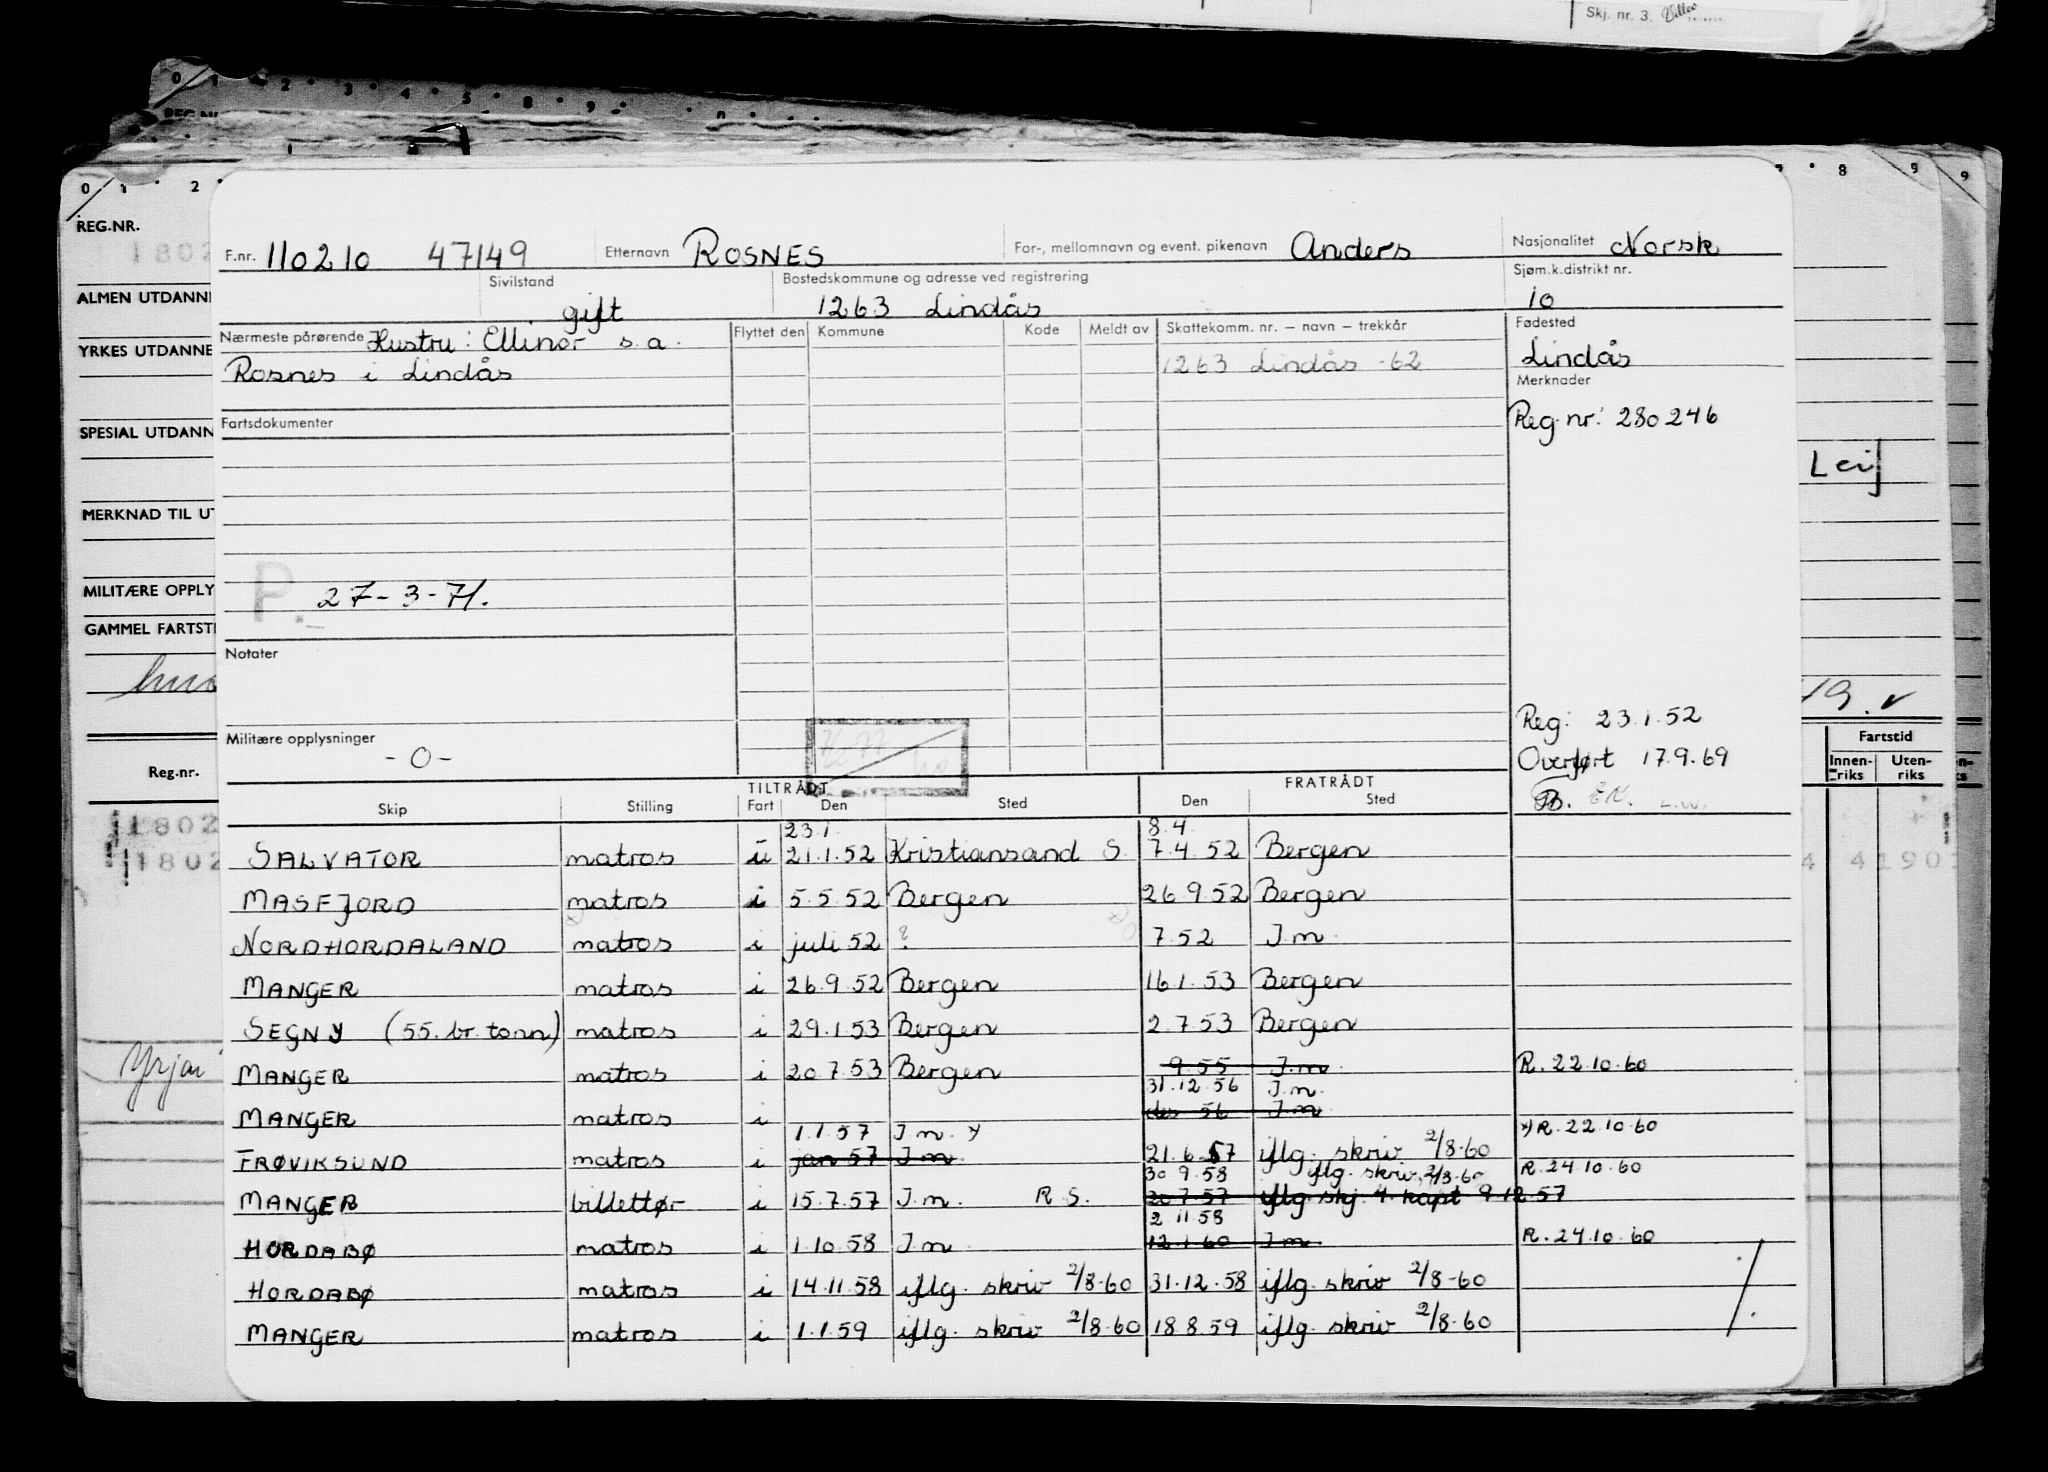 Skj. nr. 3.
0 1 2 3 4 5 8 9
0 1 2 8 9 9
REG.NR.
1802
ALMEN UTDANN
YRKES UTDANNE
SPESIAL UTDANN
MERKNAD TIL UT
MILITÆRE OPPLY
GAMMEL FARTSTI
Reg.nr.
1802
1802
Leif
19.
Fartstid
Innen-riks Uten-riks
4 4190
F.nr. 110210 47149 Etternavn ROSNES For-, mellomnavn og event. pikenavn Anders Nasjonalitet Norsk
Sivilstand gift Bostedskommune og adresse ved registrering 1263 Lindås Sjøm.k.distrikt nr. 10
Nærmeste pårørende Hustru: Ellinor s.a. Flyttet den Kommune Kode Meldt av Skattekomm. nr. — navn — trekkår Fødested
Rosnes i Lindås 1263 Lindås -62 Lindås
Merknader
Fartsdokumenter Reg.nr: 280246
P. 27-3-71.
Notater
Reg: 23.1.52
Militære opplysninger -0- Overført 17.9.69
TILTRÅDT FRATRÅDT
Skip Stilling Fart Den Sted Den Sted
23.1. 8.4.
SALVATOR matros ii 21.1.52 Kristiansand S. 7.4.52 Bergen
MASFJORD matros i 5.5.52 Bergen 26.9.52 Bergen
NORDHORDALAND matros i juli 52 ? 7.52 I.m.
MANGER matros i 26.9.52 Bergen 16.1.53 Bergen
SEGNY (55. br. tonn) matros i 29.1.53 Bergen 2.7.53 Bergen
MANGER matros i 20.7.53 Bergen 9.55 I.m. R. 22.10.60
31.12.56 I.m.
MANGER matros i des 56 I.m
1.1.57 I.m. x) x) R. 22.10.60
FRØVIKSUND matros i jan 57 I.m. 21.6.57 iflg. skriv 2/8-60
30.9.58 iflg. skriv. 2/8-60 R. 24.10.60
MANGER billettør i 15.7.57 I.m. R S. 20.7.57 iflg. skj. 4. kapt 9.12.57
2.11.58
HORDABØ matros i 1.10.58 I.m 12.1.60 I.m R. 24.10.60
HORDABØ matros i 14.11.58 iflg. skriv 2/8-60 31.12.58 iflg. skriv 2/8-60
MANGER matros i 1.1.59 iflg. skriv 2/8-60 18.8.59 iflg. skriv 2/8-60